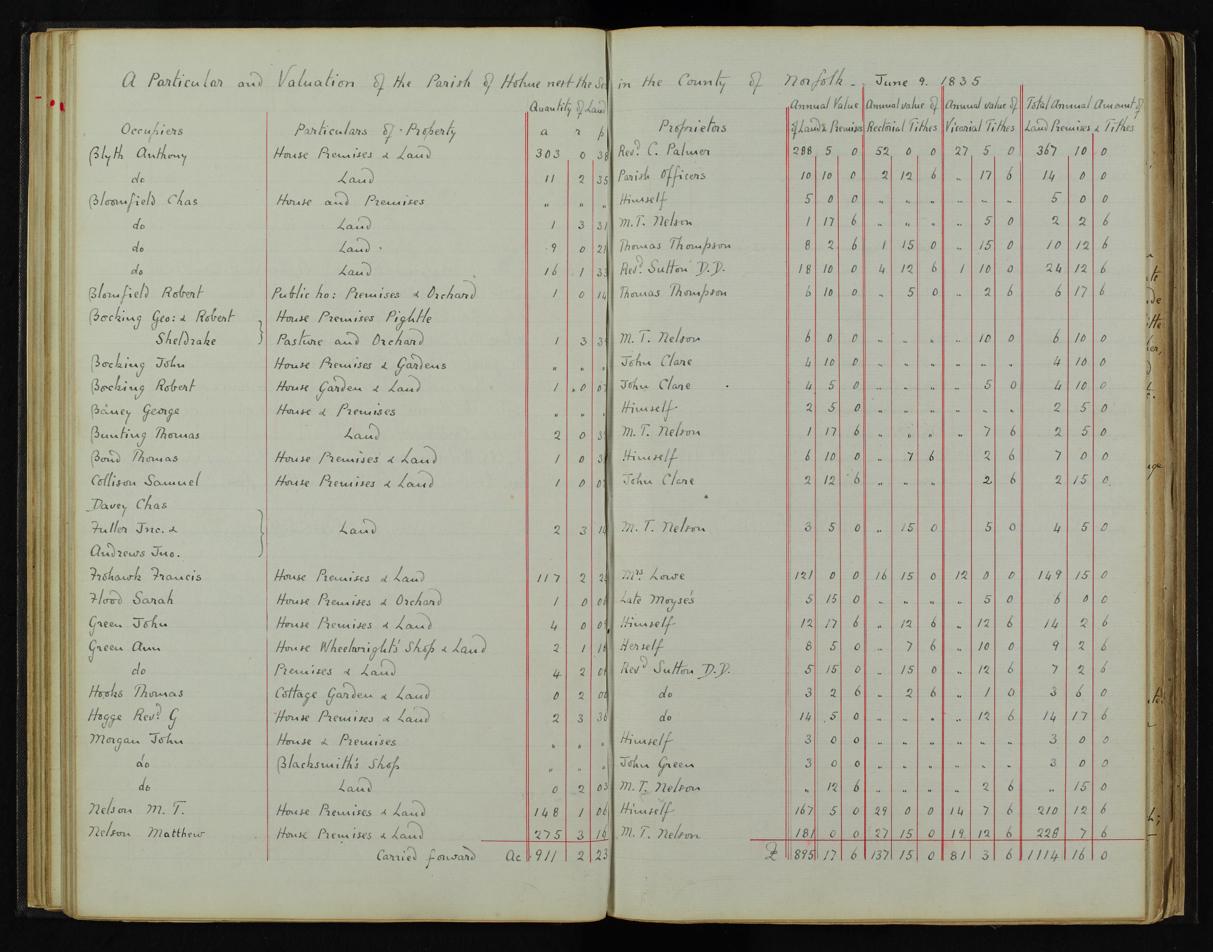 A Particular and Valuation of the Parish of Holme next the Sea in the County of Norfolk - June 9. 1835
Quantity of Land Annual Value Annual value of Annual value of Total Annual Amount of
Occupiers Particulars of Property a r p Proprietors of Land & Premises Rectorial Tithes Vicarial Tithes Land Premises & Tithes
Blyth Anthony House Premises & Land 303 0 38 Revd. C. Palmer 288 5 0 52 0 0 27 5 0 367 10 0
do Land 11 2 35 Parish Officers 10 10 0 2 12 6 " 17 6 14 0 0
Bloomfield Chas House and Premises " " " Himself 5 0 0 " " " " " " 5 0 0
do Land 1 3 31 M. T. Nelson 1 17 6 " " " 5 0 2 2 6
do Land 9 0 21 Thomas Thompson 8 2 6 1 15 0 " 15 0 10 12 6
do Land 16 1 33 Revd. Sutton D.D. 18 10 0 4 12 6 1 10 0 24 12 6
Blomfield Robert Public ho: Premises & Orchard 1 0 14 Thomas Thompson 6 10 0 " 5 0 " 2 6 6 17 6
Bocking Geo: & Robert House Premises Pightle
Sheldrake } Pasture and Orchard 1 3 M. T. Nelson 6 0 0 " " " " 10 0 6 10 0
Bocking John House Premises & Gardens " " " John Clare 4 10 0 " " " " " " 4 10 0
Bocking Robert House Garden & Land 1 0 07 John Clare 4 5 0 " " " 5 0 4 10 0
Baney George House & Premises " " " Himself 2 5 0 " " " " " " 2 5 0
Bunting Thomas Land 2 0 M. T. Nelson 1 17 6 " " " " 7 6 2 5 0
Bond Thomas House Premises & Land 1 0 Himself 6 10 0 " 7 6 2 6 7 0 0
Collison Samuel House Premises & Land 1 0 John Clare 2 12 6 " " " 2 6 2 15 0
Davey Chas
Fuller Jnc. & } Land 2 3 14 M. T. Nelson 3 5 0 " 15 0 5 0 4 5 0
Andrews Jno.
Frohawk Francis House Premises & Land 117 2 M.rs Lowe 121 0 0 16 15 0 12 0 0 149 15 0
Flood Sarah House Premises & Orchard 1 0 Late Moyse's 5 15 0 " " " " 5 0 6 0 0
Green John House Premises & Land 4 0 09 Himself 12 17 6 " 12 6 " 12 6 14 2 6
Green Ann House Wheelwright's Shop & Land 2 1 18 Herself 8 5 0 " 7 6 " 10 0 9 2 6
do Premises & Land 4 2 Revd Sutton D.D. 5 15 0 " 15 0 " 12 6 7 2 6
Hooks Thomas Cottage Garden & Land 0 2 00 do 3 2 6 " 2 6 " 1 0 3 6 0
Hogge Revd. G House Premises & Land 2 3 36 do 14 5 0 " " " " 12 6 14 17 6
Morgan John House & Premises " " " Himself 3 0 0 " " " " " " 3 0 0
do Blacksmith's Shop " " " John Green 3 0 0 " " " " " " 3 0 0
do Land 0 2 03 M. T. Nelson " 12 6 " " " " 2 6 " 15 0
Nelson M. T. House Premises & Land 148 1 06 Himself 167 5 0 29 0 0 14 7 6 210 12 6
Nelson Matthew House Premises & Land 275 3 16 M. T. Nelson 181 0 0 27 15 0 19 12 6 228 7 6
Carried forward Ac 911 2 23 £ 895 17 6 137 15 0 81 3 6 1114 16 0